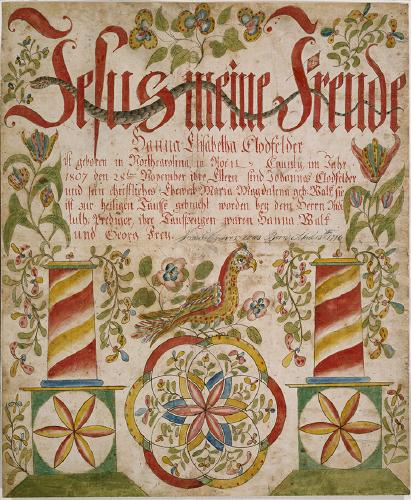 Jesus meine Freude
Sanna Elisabetha Clodfelder
ist geboren in Northcarolina, in County, im Jahr
1807 den 28ten November ihre Eltern sind Johannes Clodfelder
und sein christliches Eheweib Maria Magdalena geb. Walk sie
ist zur heiligen Taufe gebracht worden bey dem Herrn
luth. Prediger, ihre Taufzeugen waren Sanna Walk
und Georg Frey. was Born